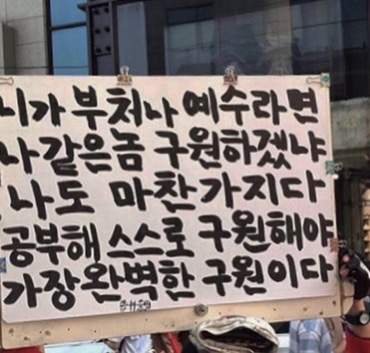 니가 부처나 예수라면
나같은놈 구원하겠냐
나도 마찬가지다
공부해 스스로 구원해야
가장완벽한 구원이다